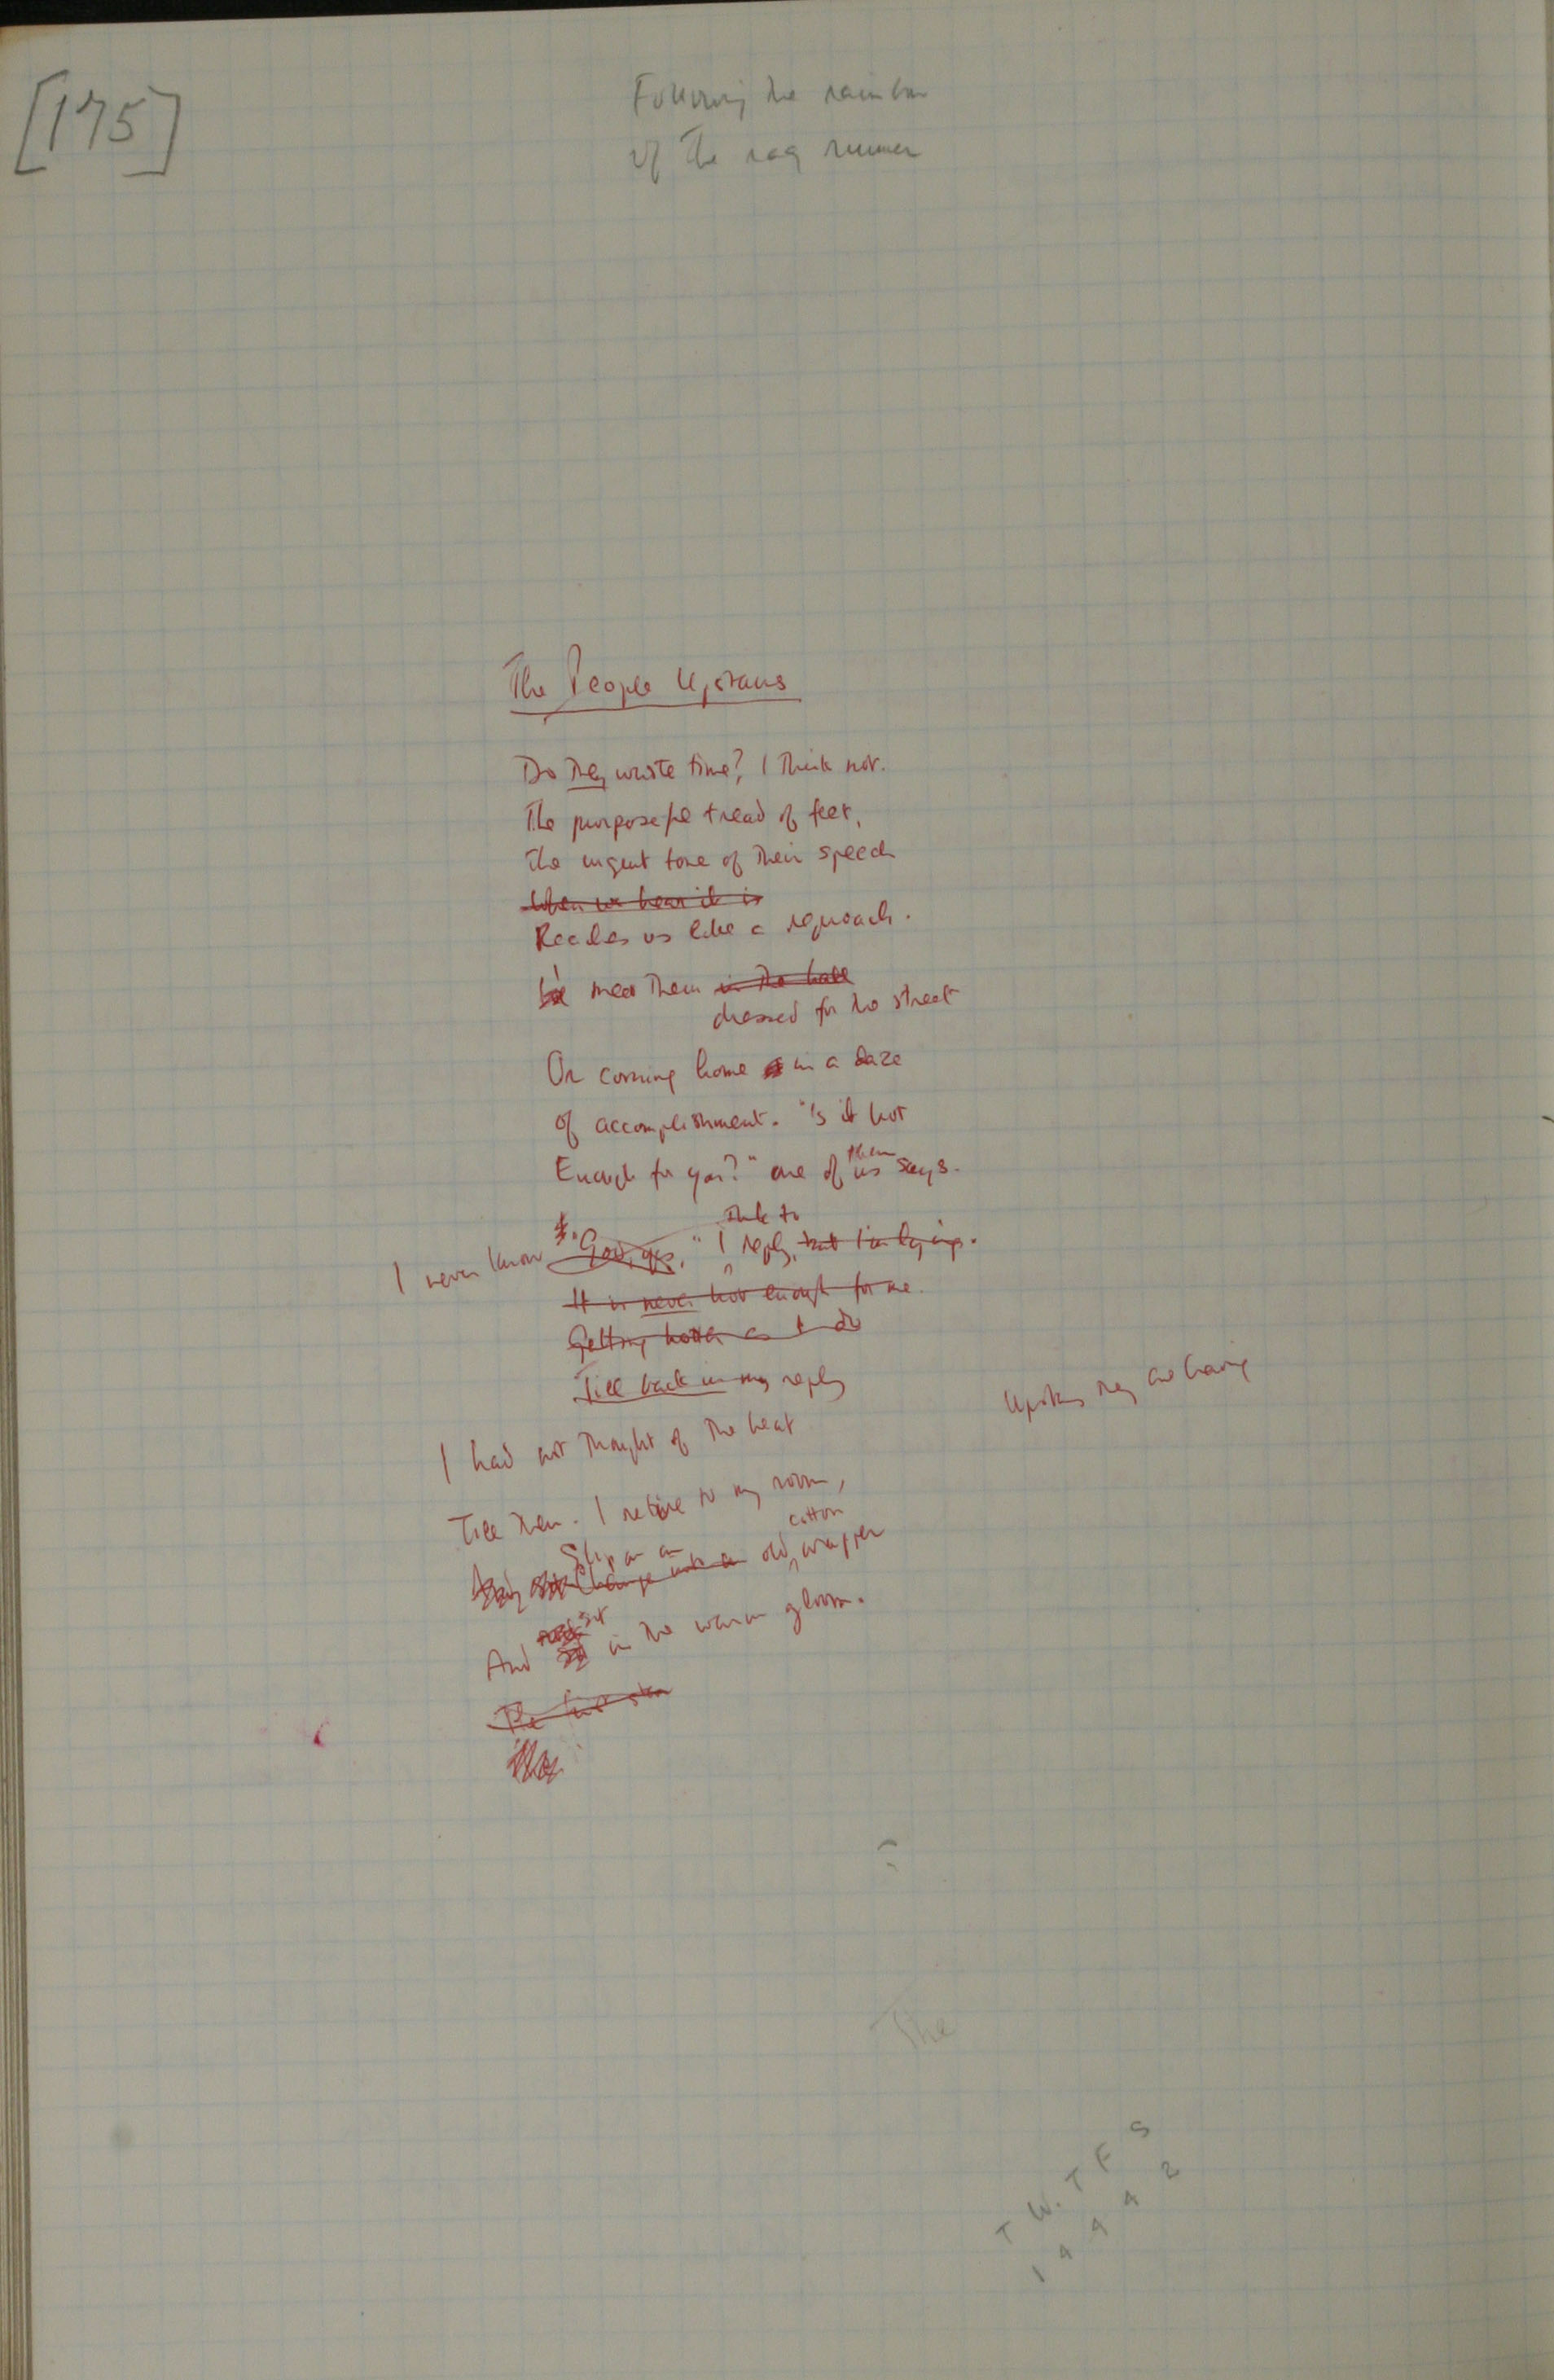 [175]
Following the rainbow
of the rag runner
The People Upstairs
Do they waste time? I think not.
The purposeful tread of feet,
The urgent tone of their speech
When we hear it is
Reaches us like a reproach.
I meet them in the hall
dressed for the street
Or coming home in a daze
Of accomplishment. "Is it hot
Enough for you?" one of us them says.
I never know "God, yes," I reply, but I'm lying.
It is never hot enough for me.
Getting hotter as I do
Till back in my reply
Upstairs they are having
I had not thought of the heat
Till then. I retire to my room,
Slip on an
Change into an old cotton wrapper
And sit in the warm gloom.
The
The
T W. T F S
1 4 4 4 2